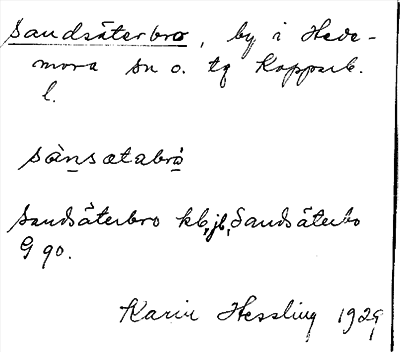 Sandsäterbro, by i Hede-
mora sn o. tg Kopparb.
l.
sànsætabrò
Sandsäterbro kb, jb, Sandsäterbo
G 90.
Karin Hessling 1929